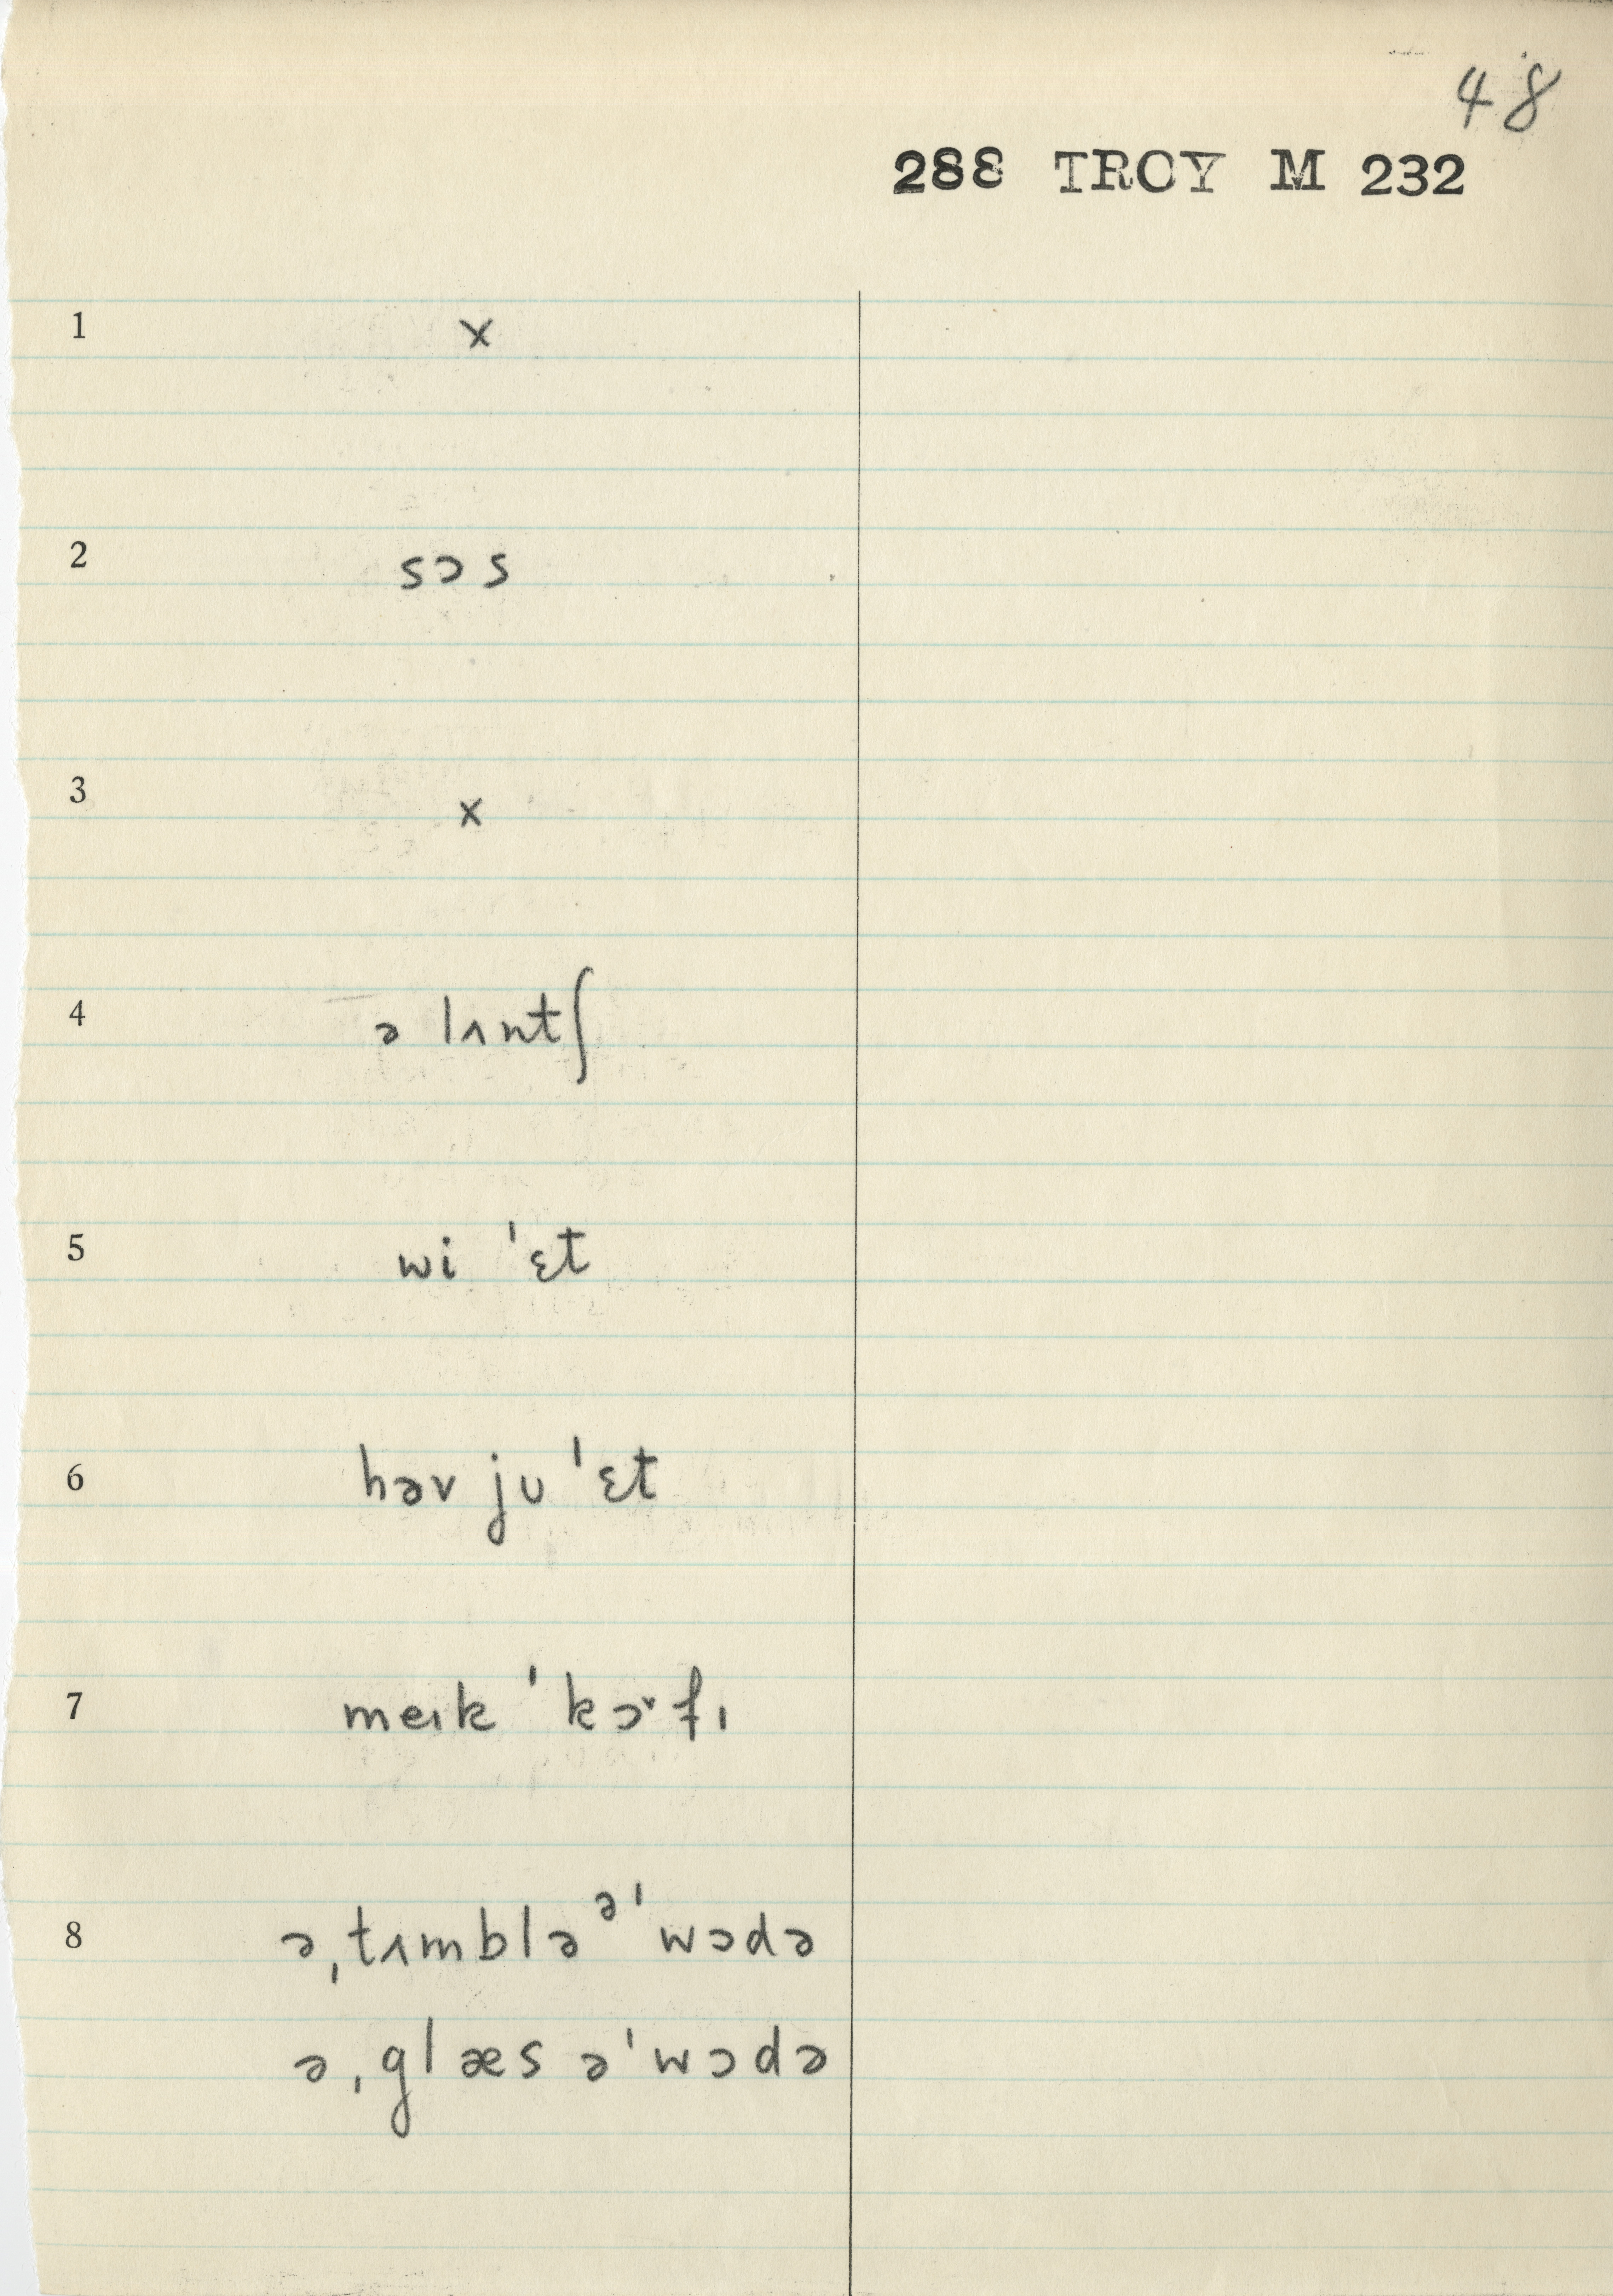 48
288 TROY M 232
1 x
2 sɔs
3 x
4 ə lʌntʃ
5 wi ˈɛt
6 həv ju ˈɛt
7 meɪk ˈkɔ˅fɪ
8 əˌtʌmblə ᵊˈwɔdə
əˌglæs əˈwɔdə